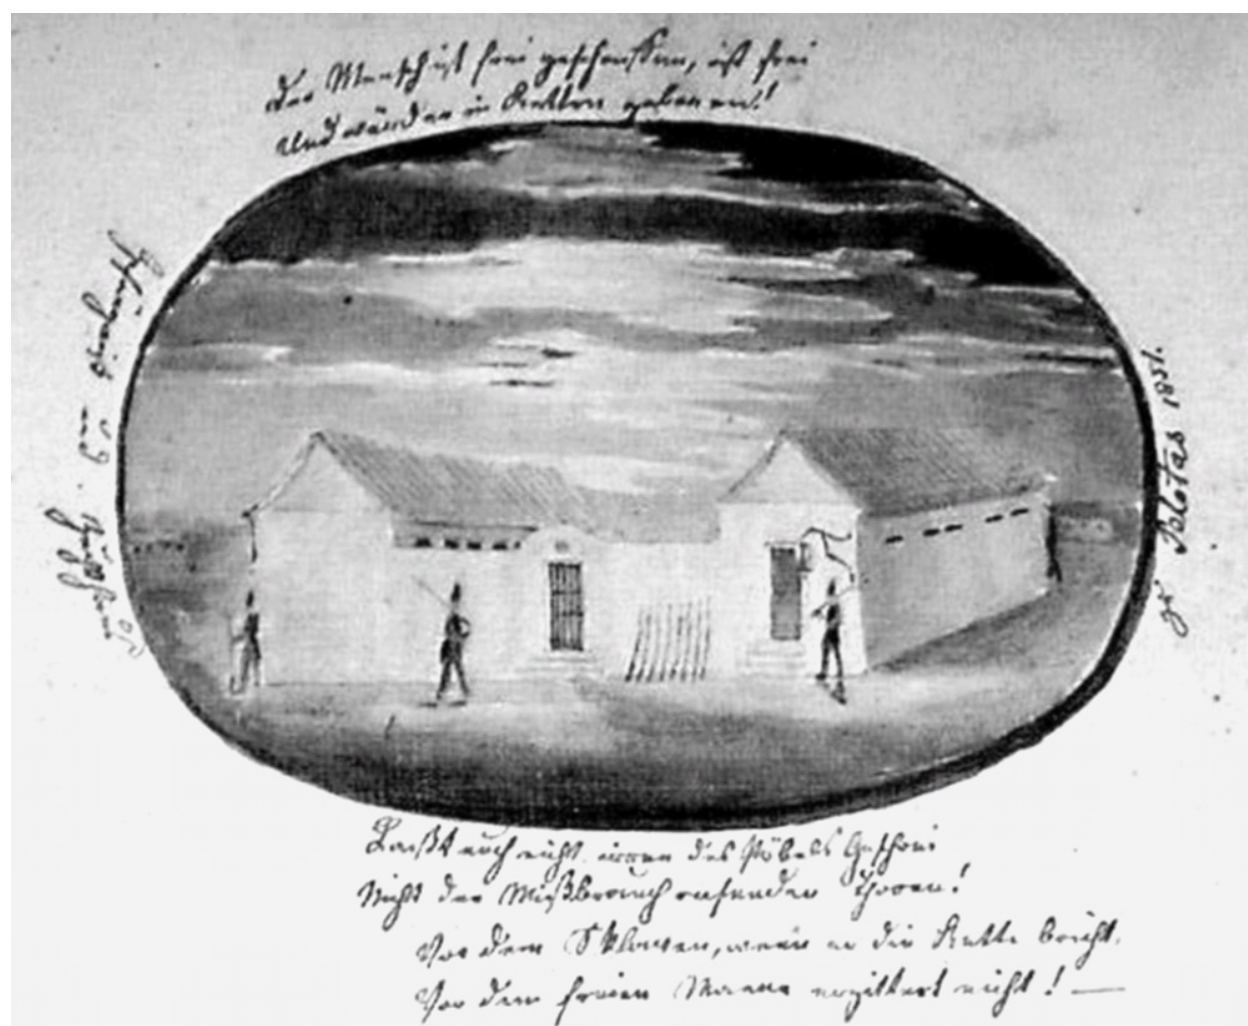 Der Mensch ist frei geschaffen, ist frei
Und würd er in Ketten geboren!
zu Pelotas 1851.
Laßt euch nicht irren des Pöbels Geschrei
Nicht der Mißbrauch rasender Thoren!
Vor dem Sklaven, wenn er die Kette bricht,
Vor dem freien Manne erzittert nicht! —